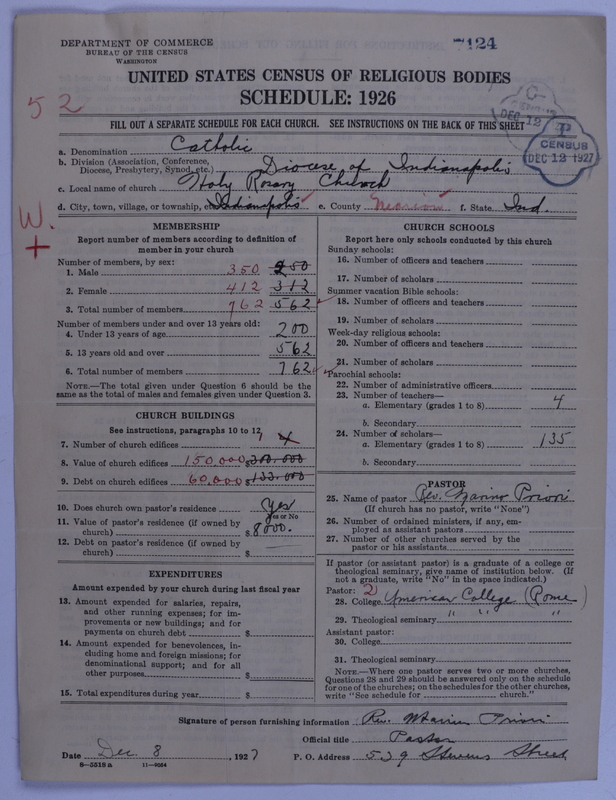 7424
DEPARTMENT OF COMMERCE
BUREAU OF THE CENSUS
WASHINGTON
UNITED STATES CENSUS OF RELIGIOUS BODIES
SCHEDULE: 1926
52
FILL OUT A SEPARATE SCHEDULE FOR EACH CHURCH. SEE INSTRUCTIONS ON THE BACK OF THIS SHEET
G
DEC 12
T
CENSUS
DEC 12 1927
a. Denomination Catholic
b. Division (Association, Conference, Diocese, Presbytery, Synod, etc.) Diocese of Indianapolis
c. Local name of church Holy Rosary Church
d. City, town, village, or township, etc. Indianapolis e. County Marion f. State Ind.
W.
+
MEMBERSHIP
Report number of members according to definition of
member in your church
Number of members, by sex:
1. Male 350 250
2. Female 412 312
3. Total number of members 762 562
Number of members under and over 13 years old:
4. Under 13 years of age 200
5. 13 years old and over 562
6. Total number of members 762
NOTE.—The total given under Question 6 should be the
same as the total of males and females given under Question 3.
CHURCH BUILDINGS
See instructions, paragraphs 10 to 12
7. Number of church edifices 1
8. Value of church edifices 150,000 $300.000
9. Debt on church edifices 60,000 $133.000
10. Does church own pastor's residence? Yes
Yes or No
11. Value of pastor's residence (if owned by
church) $ 8000.
12. Debt on pastor's residence (if owned by
church) $
EXPENDITURES
Amount expended by your church during last fiscal year
13. Amount expended for salaries, repairs,
and other running expenses; for im-
provements or new buildings; and for
payments on church debt $
14. Amount expended for benevolences, in-
cluding home and foreign missions; for
denominational support; and for all
other purposes $
15. Total expenditures during year $
CHURCH SCHOOLS
Report here only schools conducted by this church
Sunday schools:
16. Number of officers and teachers
17. Number of scholars
Summer vacation Bible schools:
18. Number of officers and teachers
19. Number of scholars
Week-day religious schools:
20. Number of officers and teachers
21. Number of scholars
Parochial schools:
22. Number of administrative officers
23. Number of teachers—
a. Elementary (grades 1 to 8) 4
b. Secondary
24. Number of scholars—
a. Elementary (grades 1 to 8) 135
b. Secondary
PASTOR
25. Name of pastor Rev. Marino Priori
(If church has no pastor, write "None")
26. Number of ordained ministers, if any, em-
ployed as assistant pastors
27. Number of other churches served by the
pastor or his assistants
If pastor (or assistant pastor) is a graduate of a college or
theological seminary, give name of institution below. (If
not a graduate, write "No" in the space indicated.)
Pastor: 2
28. College American College (Rome)
29. Theological seminary " " "
Assistant pastor:
30. College
31. Theological seminary
NOTE.—Where one pastor serves two or more churches,
Questions 28 and 29 should be answered only on the schedule
for one of the churches; on the schedules for the other churches,
write "See schedule for church."
Signature of person furnishing information Rev. Marino Priori
Official title Pastor
Date Dec. 8, 1927 P. O. Address 529 Stevens Street
8—5518 a 11—9054